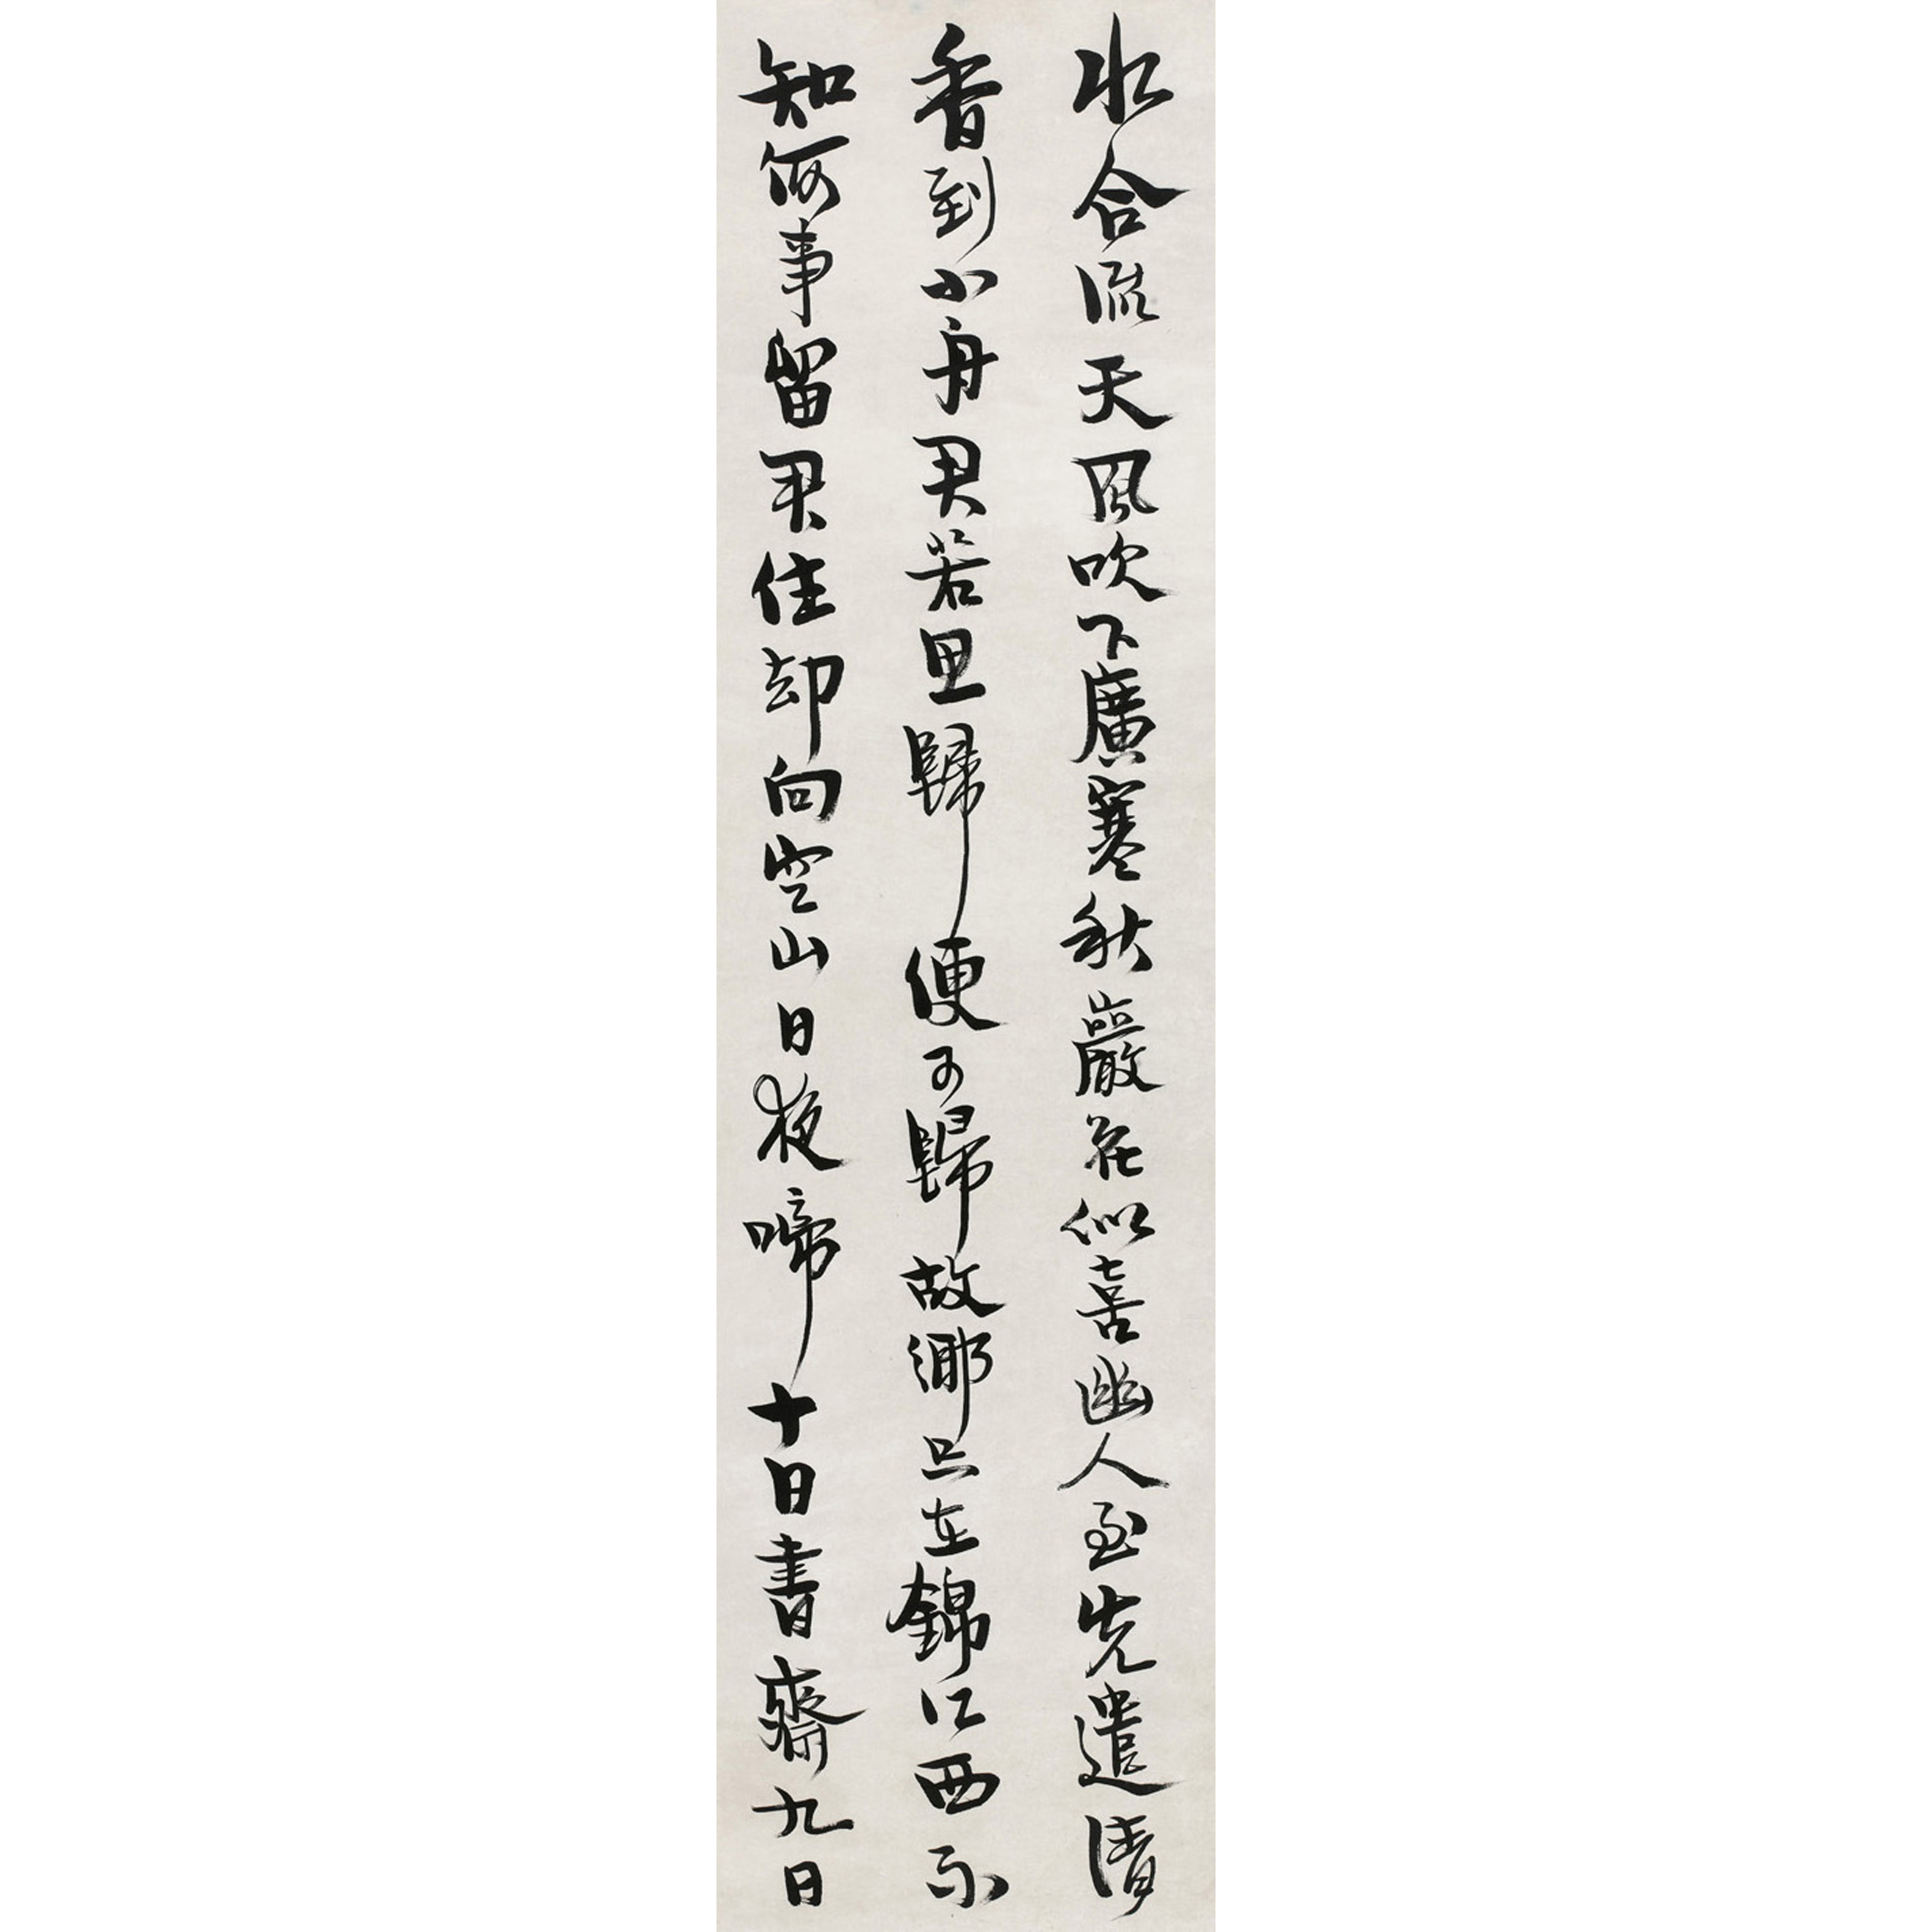 水合流天風吹下廣寒秋巖花似喜幽人至先遣清
香到小舟君若思歸便可歸故鄉只在錦江西不
知何事留君住却向空山日夜啼十日書齋九日